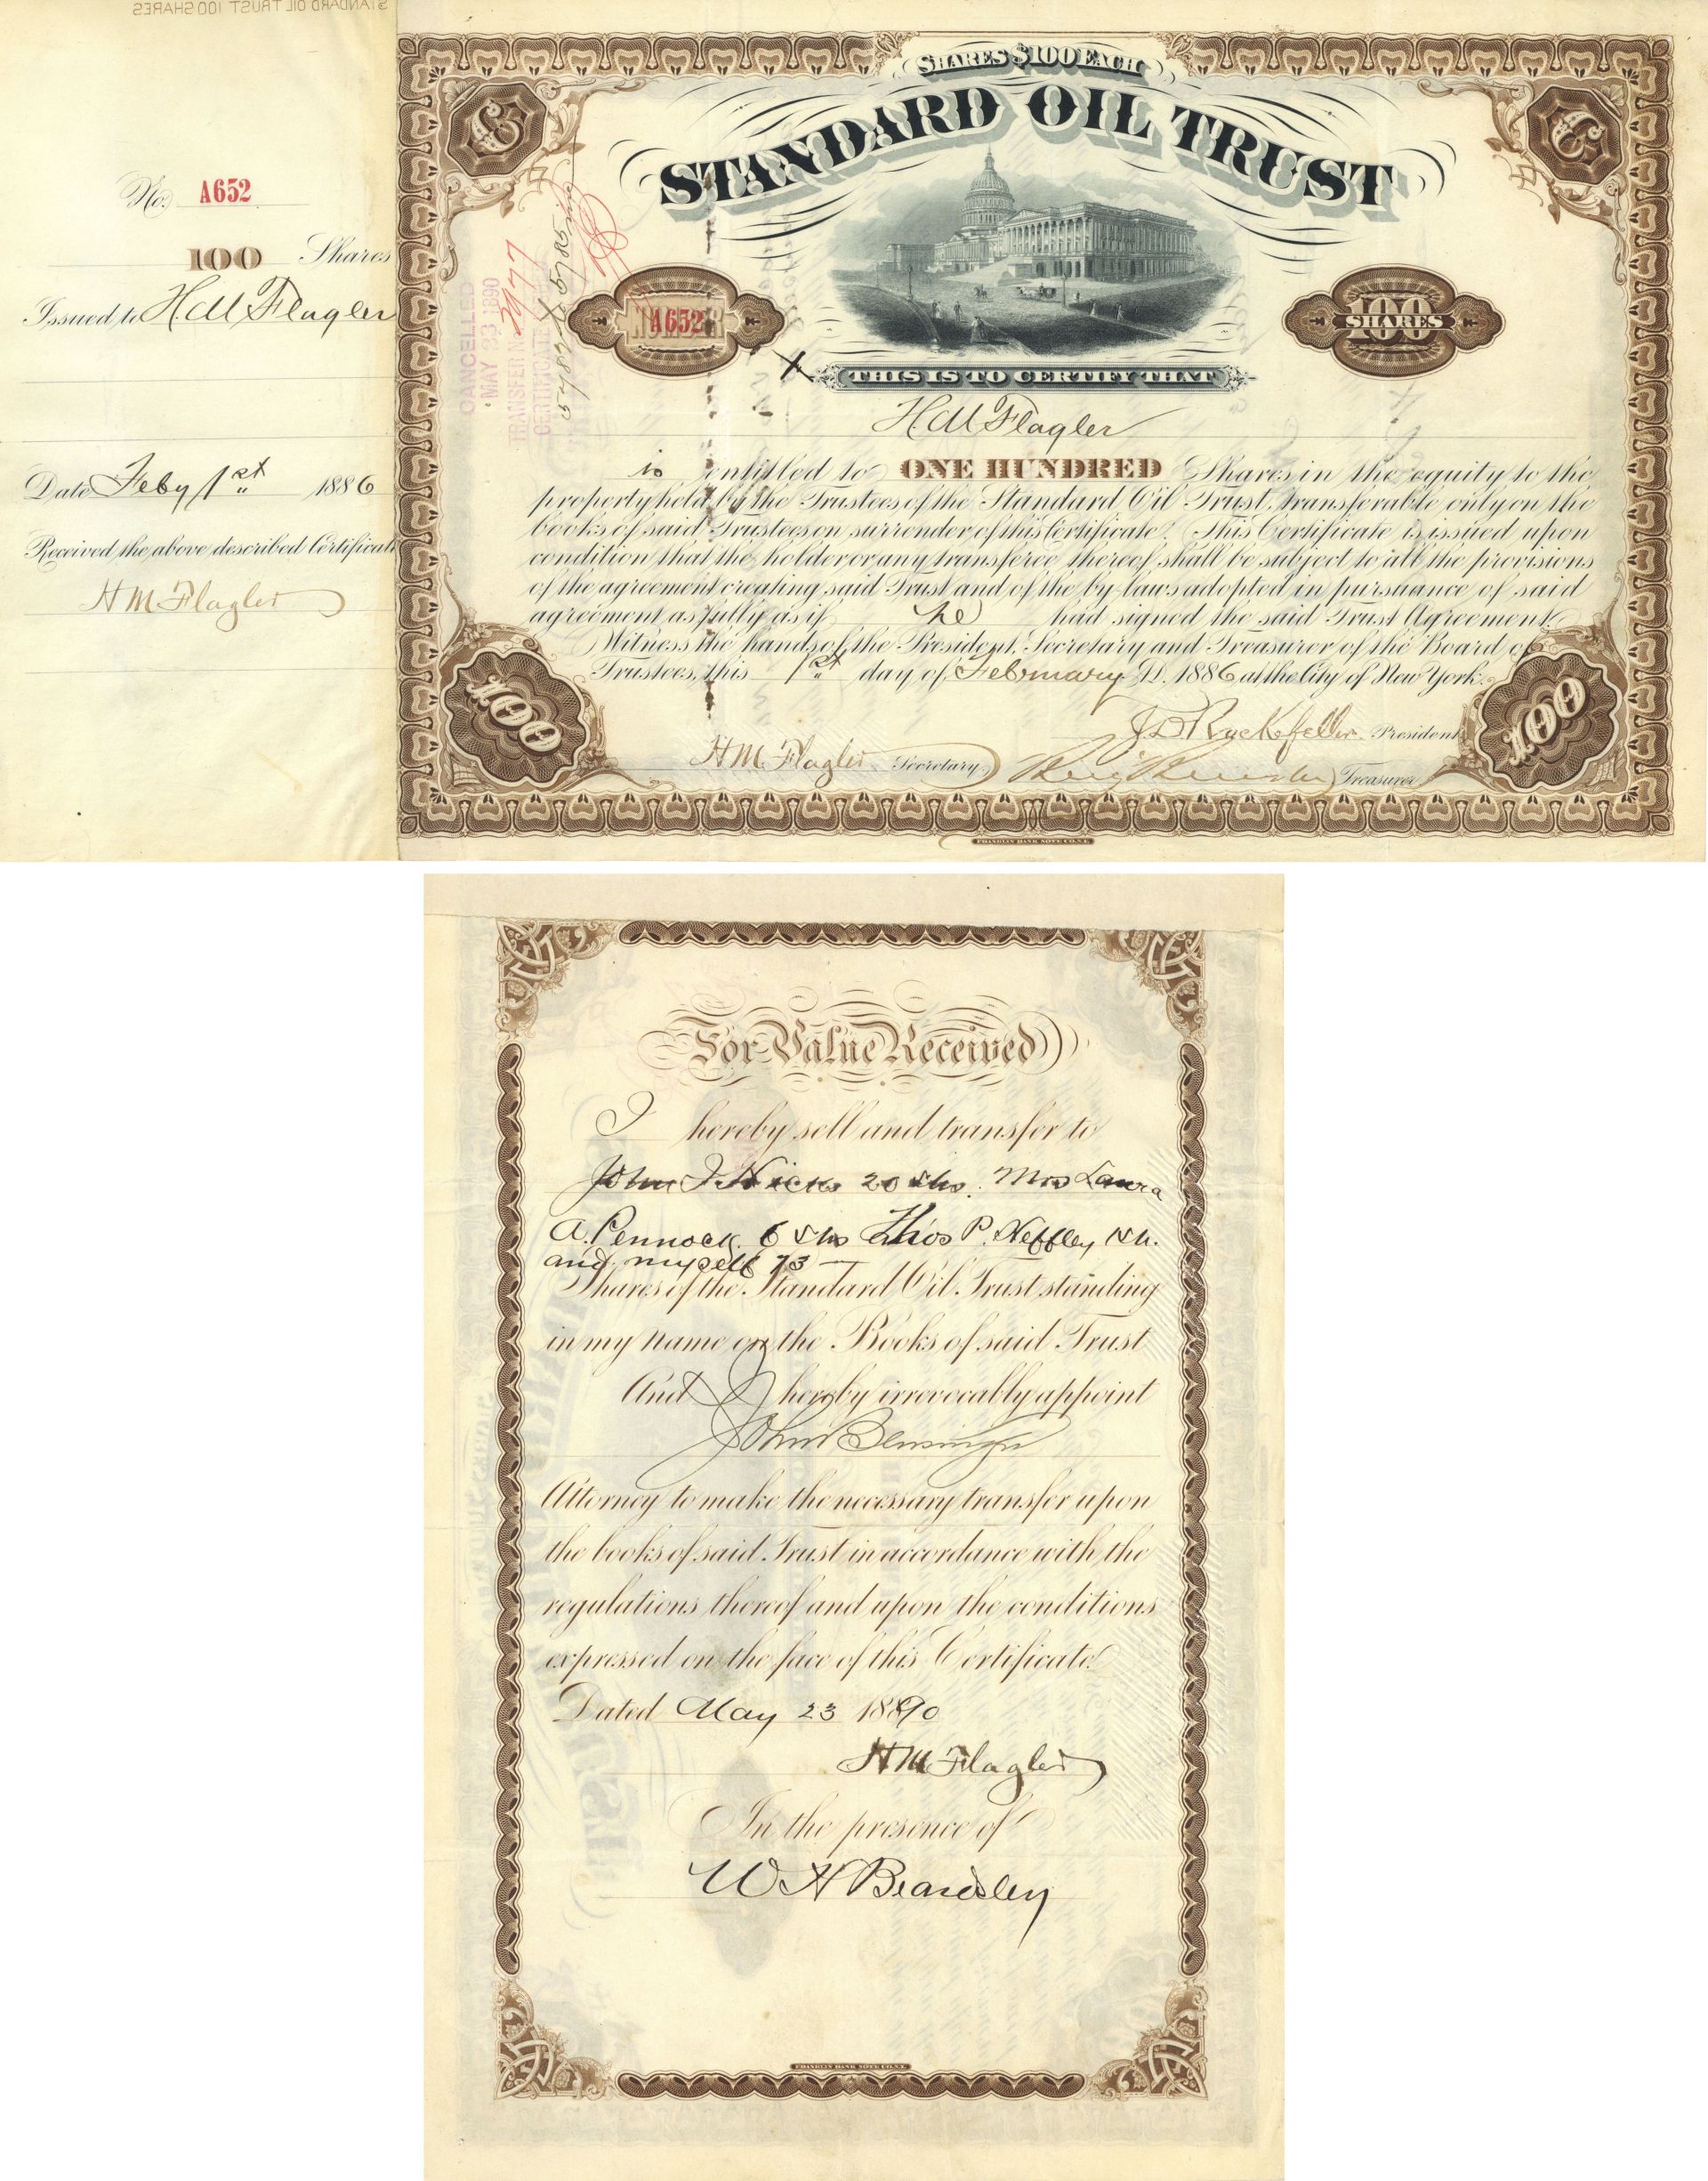 STANDARD OIL TRUST 100 SHARES
No. A652
100 Shares
Issued to H M Flagler
Date Feby 1st 1886
Received the above described Certificate
H M Flagler
SHARES $100 EACH
STANDARD OIL TRUST
CANCELLED
MAY 23 1890
TRANSFER No. 2977
CERTIFICATE
NUMBER A652
100 SHARES
X THIS IS TO CERTIFY THAT
H M Flagler
is entitled to ONE HUNDRED Shares in the equity to the
property held by the Trustees of the Standard Oil Trust, transferable only on the
books of said Trustees on surrender of this Certificate. This Certificate is issued upon
condition that the holder or any transferee thereof shall be subject to all the provisions
of the agreement creating said Trust and of the by-laws adopted in pursuance of said
agreement as fully as if he had signed the said Trust Agreement.
Witness the hands of the President, Secretary and Treasurer of the Board of
Trustees, this 1st day of February A.D. 1886 at the City of New York.
J D Rockefeller President
H M Flagler Secretary Treasurer
100
100
FRANKLIN BANK NOTE CO. N.Y.
For Value Received
I hereby sell and transfer to
John J. Hicks 20 shs. Mrs Laura
A. Pennock 6 shs Thos P. Heffley 1 sh.
and myself 73 —
Shares of the Standard Oil Trust standing
in my name on the Books of said Trust
And I hereby irrevocably appoint
John Bensinger
Attorney to make the necessary transfer upon
the books of said Trust in accordance with the
regulations thereof and upon the conditions
expressed on the face of this Certificate.
Dated May 23 1890
H M Flagler
In the presence of
W H Beardsley
FRANKLIN BANK NOTE CO. N.Y.